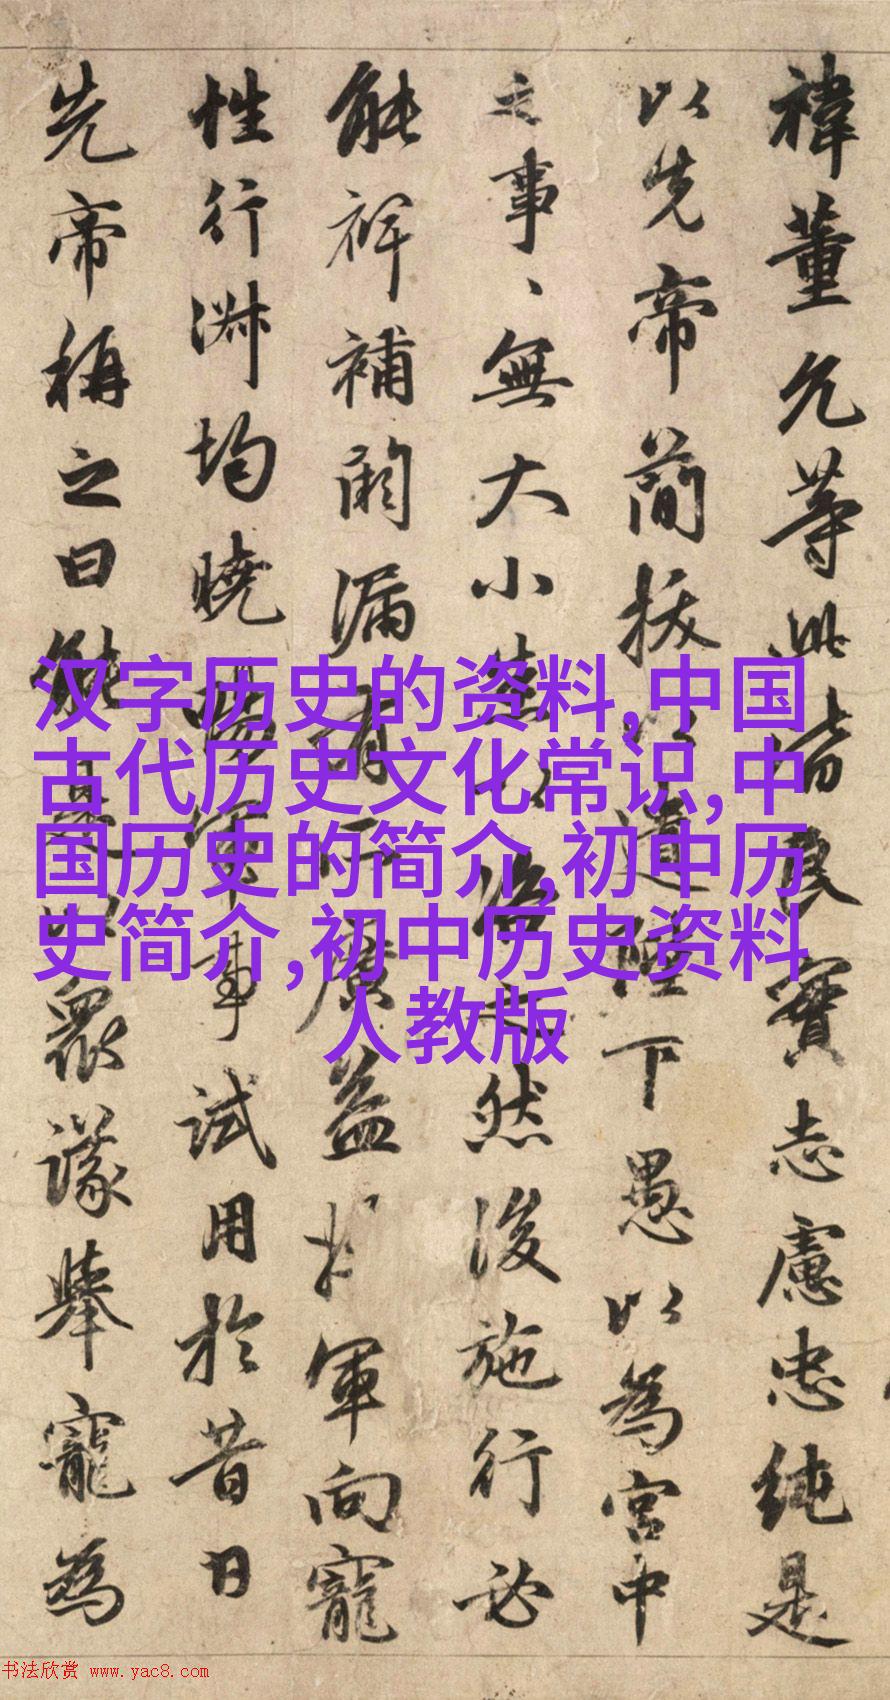 禕董允等此皆良實志慮忠純是
以先帝簡拔以遺陛下愚以為宮中
之事、無大小悉以咨之然後施行必
能裨補闕漏有所廣益將軍向寵
性行淑均曉暢軍事試用於昔日
先帝稱之曰能是以眾議舉寵為
汉字历史的资料,中国
古代历史文化常识,中
国历史的简介,初中历
史简介,初中历史资料
人教版
书法欣赏 www.yac8.com